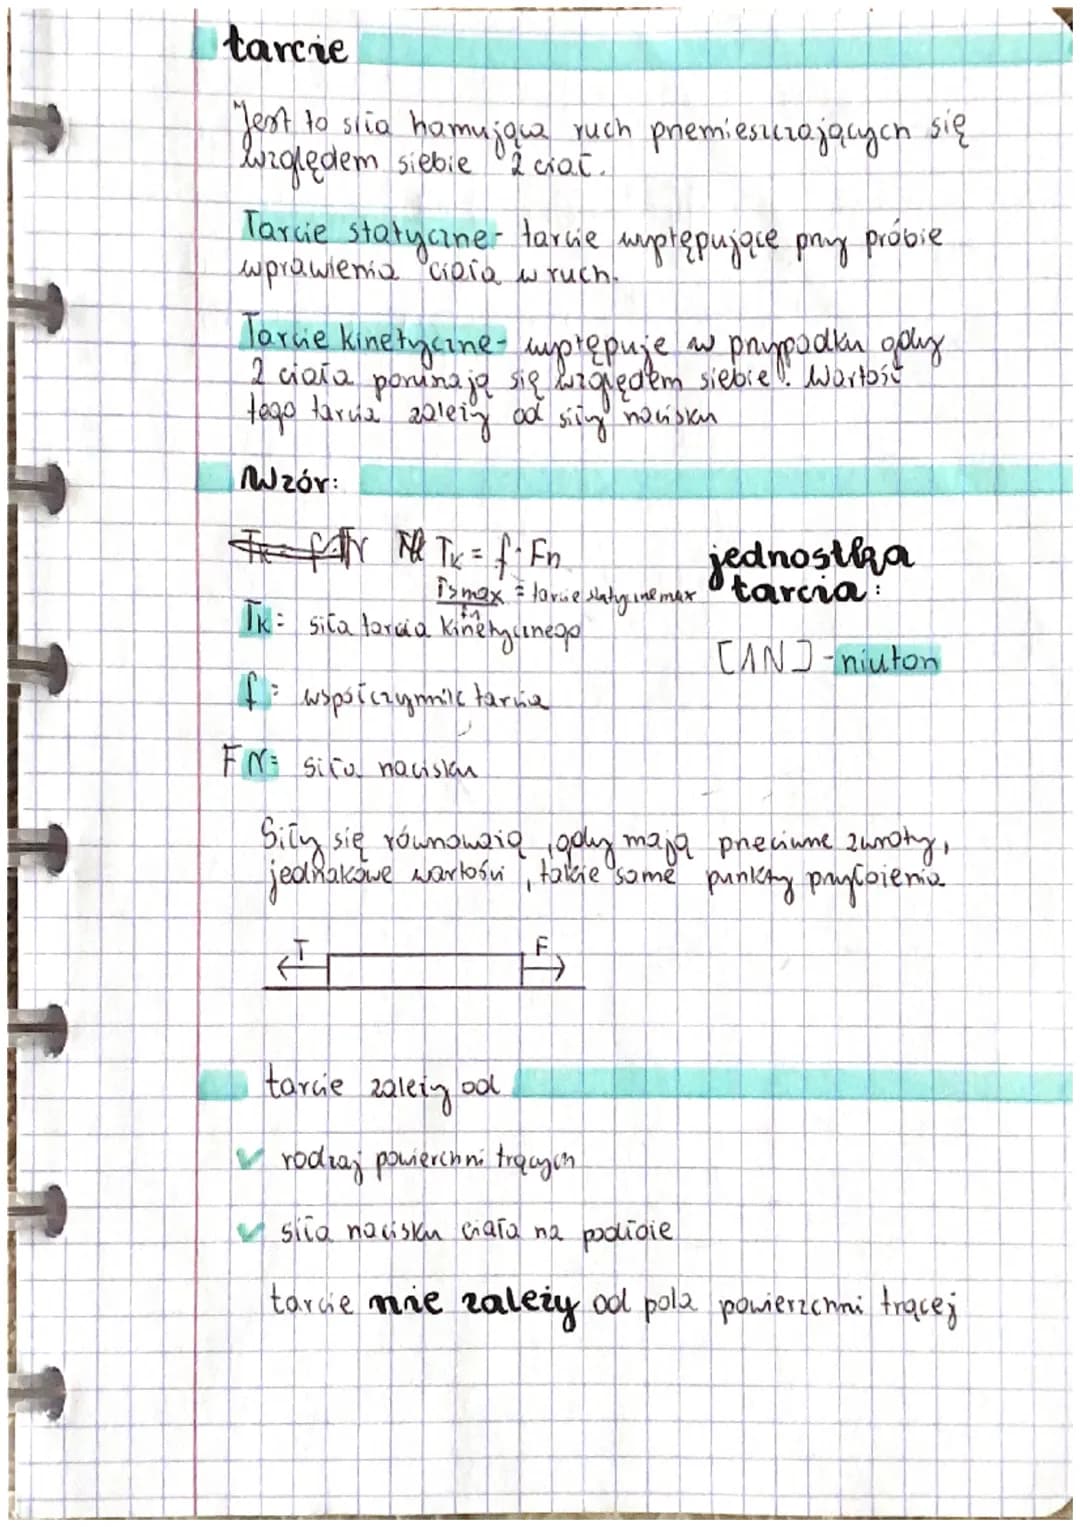 tarcie
Jest to siła hamująca ruch przemieszczających się
względem siebie 2 ciał.
Tarcie statyczne- tarcie występujące przy próbie
wprawienia ciała w ruch.
Tarcie kinetyczne- występuje w przypadku gdy
2 ciała poruszają się względem siebie. Wartość
tego tarcia zależy od siły nacisku
Wzór:
Tk = f · Fn
Tsmax = tarcie statyczne max
Fn
jednostka
tarcia:
Tk= siła tarcia kinetycznego
[1N]-niuton
f= współczynnik tarcia
FN= siła nacisku
Siły się równoważą, gdy mają przeciwne zwroty,
jednakowe wartości, takie same punkty przyłożenia
T F
tarcie zależy od
rodzaj powierchni trących
siła nacisku ciała na podłoże
tarcie nie zależy od pola powierzchni trącej